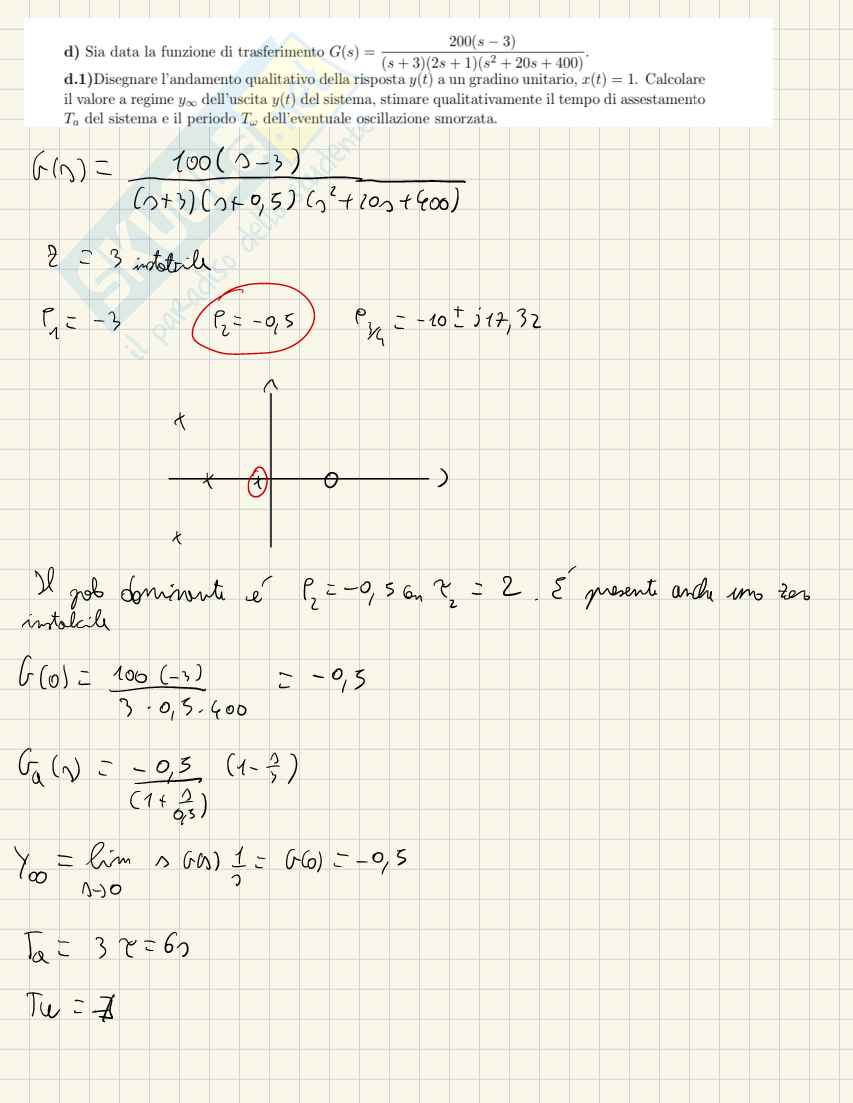 d) Sia data la funzione di trasferimento G(s) = 200(s − 3) / (s + 3)(2s + 1)(s² + 20s + 400).
d.1)Disegnare l'andamento qualitativo della risposta y(t) a un gradino unitario, x(t) = 1. Calcolare
il valore a regime y∞ dell'uscita y(t) del sistema, stimare qualitativamente il tempo di assestamento
Ta del sistema e il periodo Tω dell'eventuale oscillazione smorzata.
G(s) = 100(s−3) / (s+3)(s+0,5)(s²+20s+400)
z = 3 instabile
P1 = −3 P2 = −0,5 P3/4 = −10 ± j17,32
Il polo dominante é P2 = −0,5 con τ2 = 2. É presente anche uno zero
instabile
G(0) = 100(−3) / 3·0,5·400 = −0,5
Ga(s) = −0,5 / (1+s/0,5) (1−s/3)
Y∞ = lim s→0 s G(s) 1/s = G(0) = −0,5
Ta = 3τ = 6s
Tω = ∄
SKUOLA.net
il paradiso dello studente